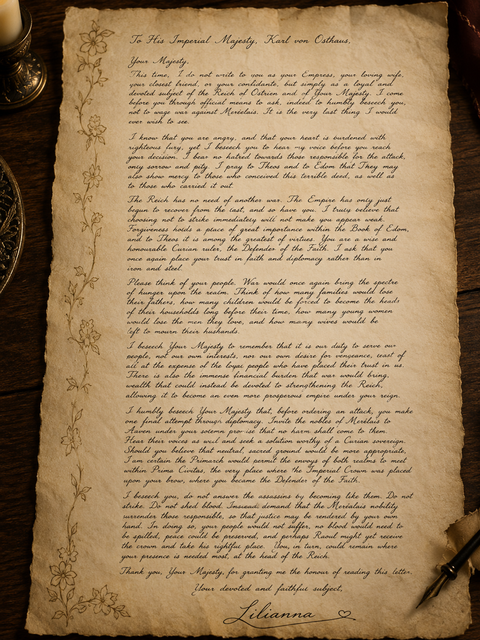 To His Imperial Majesty, Karl von Osthaus,
Your Majesty,
This time, I do not write to you as your Empress, your loving wife,
your closest friend, or your confidante, but simply as a loyal and
devoted subject of the Reich of Ostrien and of Your Majesty. I come
before you through official means to ask, indeed to humbly beseech you,
not to wage war against Merélais. It is the very last thing I would
ever wish to see.
I know that you are angry, and that your heart is burdened with
righteous fury, yet I beseech you to hear my voice before you reach
your decision. I bear no hatred towards those responsible for the attack,
only sorrow and pity. I pray to Theos and to Edom that They may
also show mercy to those who conceived this terrible deed, as well as
to those who carried it out.
The Reich has no need of another war. The Empire has only just
begun to recover from the last, and so have you. I truly believe that
choosing not to strike immediately will not make you appear weak.
Forgiveness holds a place of great importance within the Book of Edom,
and to Theos it is among the greatest of virtues. You are a wise and
honourable Curian ruler, the Defender of the Faith. I ask that you
once again place your trust in faith and diplomacy rather than in
iron and steel.
Please think of your people. War would once again bring the spectre
of hunger upon the realm. Think of how many families would lose
their fathers, how many children would be forced to become the heads
of their households long before their time, how many young women
would lose the men they love, and how many wives would be
left to mourn their husbands.
I beseech Your Majesty to remember that it is our duty to serve our
people, not our own interests, nor our own desire for vengeance, least of
all at the expense of the loyal people who have placed their trust in us.
There is also the immense financial burden that war would bring,
wealth that could instead be devoted to strengthening the Reich,
allowing it to become an even more prosperous empire under your reign.
I humbly beseech Your Majesty that, before ordering an attack, you make
one final attempt through diplomacy. Invite the nobles of Merélais to
Aaven under your solemn promise that no harm shall come to them.
Hear their voices as well and seek a solution worthy of a Curian sovereign.
Should you believe that neutral, sacred ground would be more appropriate,
I am certain the Primarch would permit the envoys of both realms to meet
within Prima Civitas, the very place where the Imperial Crown was placed
upon your brow, where you became the Defender of the Faith.
I beseech you, do not answer the assassins by becoming like them. Do not
strike. Do not shed blood. Instead, demand that the Merélais nobility
surrender those responsible, so that justice may be rendered by your own
hand. In doing so, your people would not suffer, no blood would need to
be spilled, peace could be preserved, and perhaps Raoul might yet receive
the crown and take his rightful place. You, in turn, could remain where
your presence is needed most, at the head of the Reich.
Thank you, Your Majesty, for granting me the honour of reading this letter.
Your devoted and faithful subject,
Lilianna